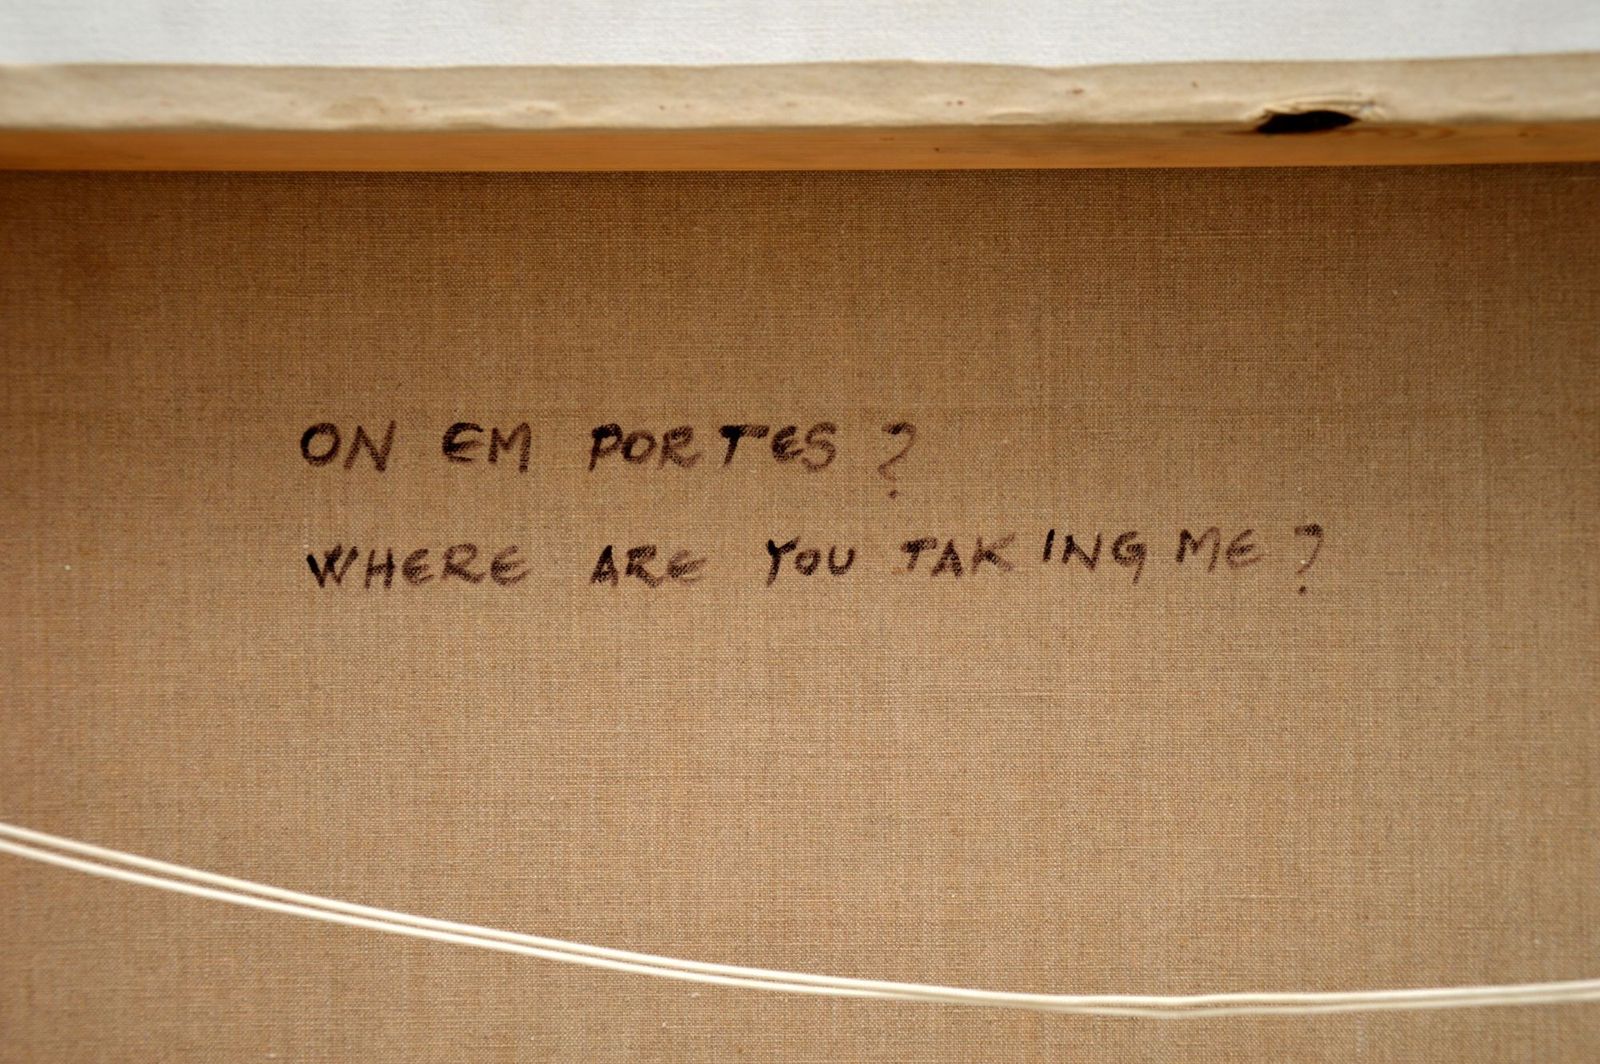 ON EM PORTES ?
WHERE ARE YOU TAKING ME ?